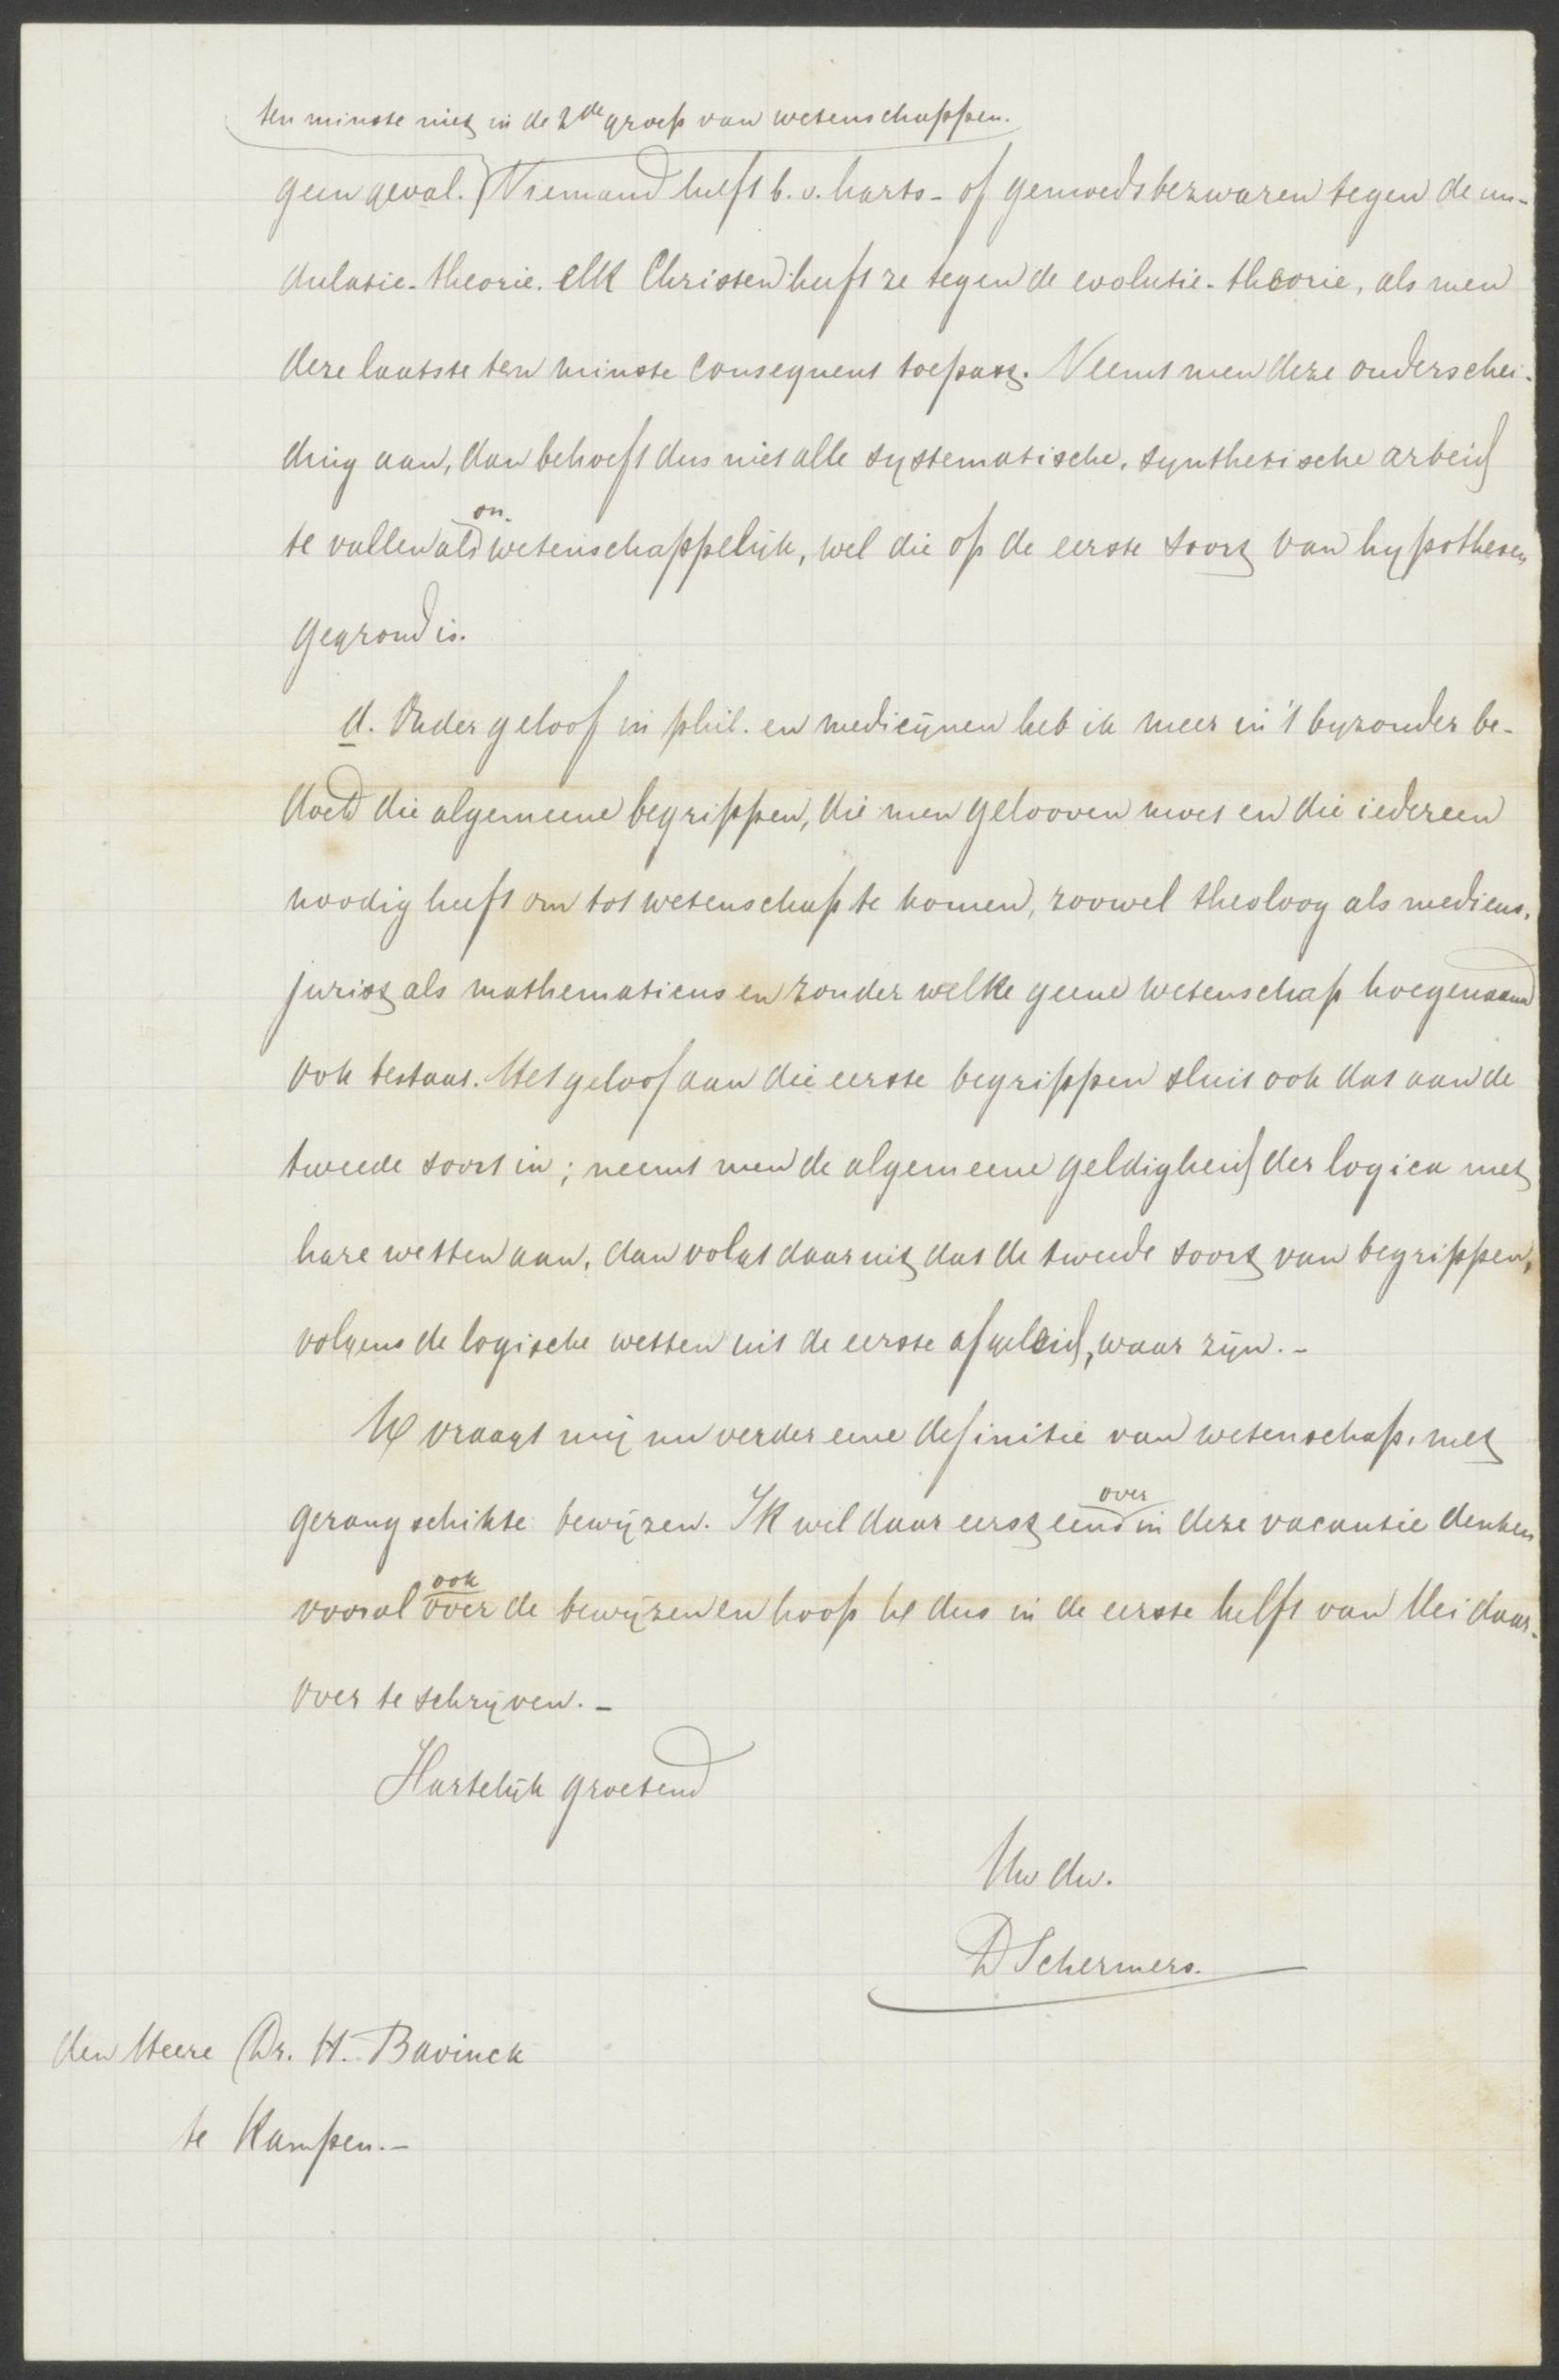 ten minste niet in de 2de groep van wetenschappen.
geen geval. Niemand heeft b.v. harts- of gemoedsbezwaren tegen de un-
dulatie-theorie. elk Christen heeft ze tegen de evolutie-theorie, als men
deze laatste ten minste consequent toepast. Neemt men deze onderschei-
ding aan, dan behoeft dus niet alle systematische, synthetische arbeid
on-
te vallen als wetenschappelijk, wel die op de eerste soort van hypothesen
gegrond is.
d. Onder geloof in phil. en medicijnen heb ik meer in 't byzonder be-
doeld die algemeene begrippen, die men gelooven moet en die iedereen
noodig heeft om tot wetenschap te komen, zoowel theoloog als medicus,
jurist als mathematicus en zonder welke geene wetenschap hoegenaamd
ook bestaat. Het geloof aan die eerste begrippen sluit ook dat aan de
tweede soort in; neemt men de algemeene geldigheid der logica met
hare wetten aan, dan volgt daaruit dat de tweede soort van begrippen,
volgens de logische wetten uit de eerste afgeleid, waar zijn.-
U vraagt mij nu verder eene definitie van wetenschap, met
over
gerangschikte bewijzen. Ik wil daar eerst eens in deze vacantie denken
ook
vooral over de bewijzen en hoop U dus in de eerste helft van Mei daar-
over te schrijven.-
Hartelijk groetend
Uw dw.
D Schermers.
den Heere Dr. H. Bavinck
te Kampen.-